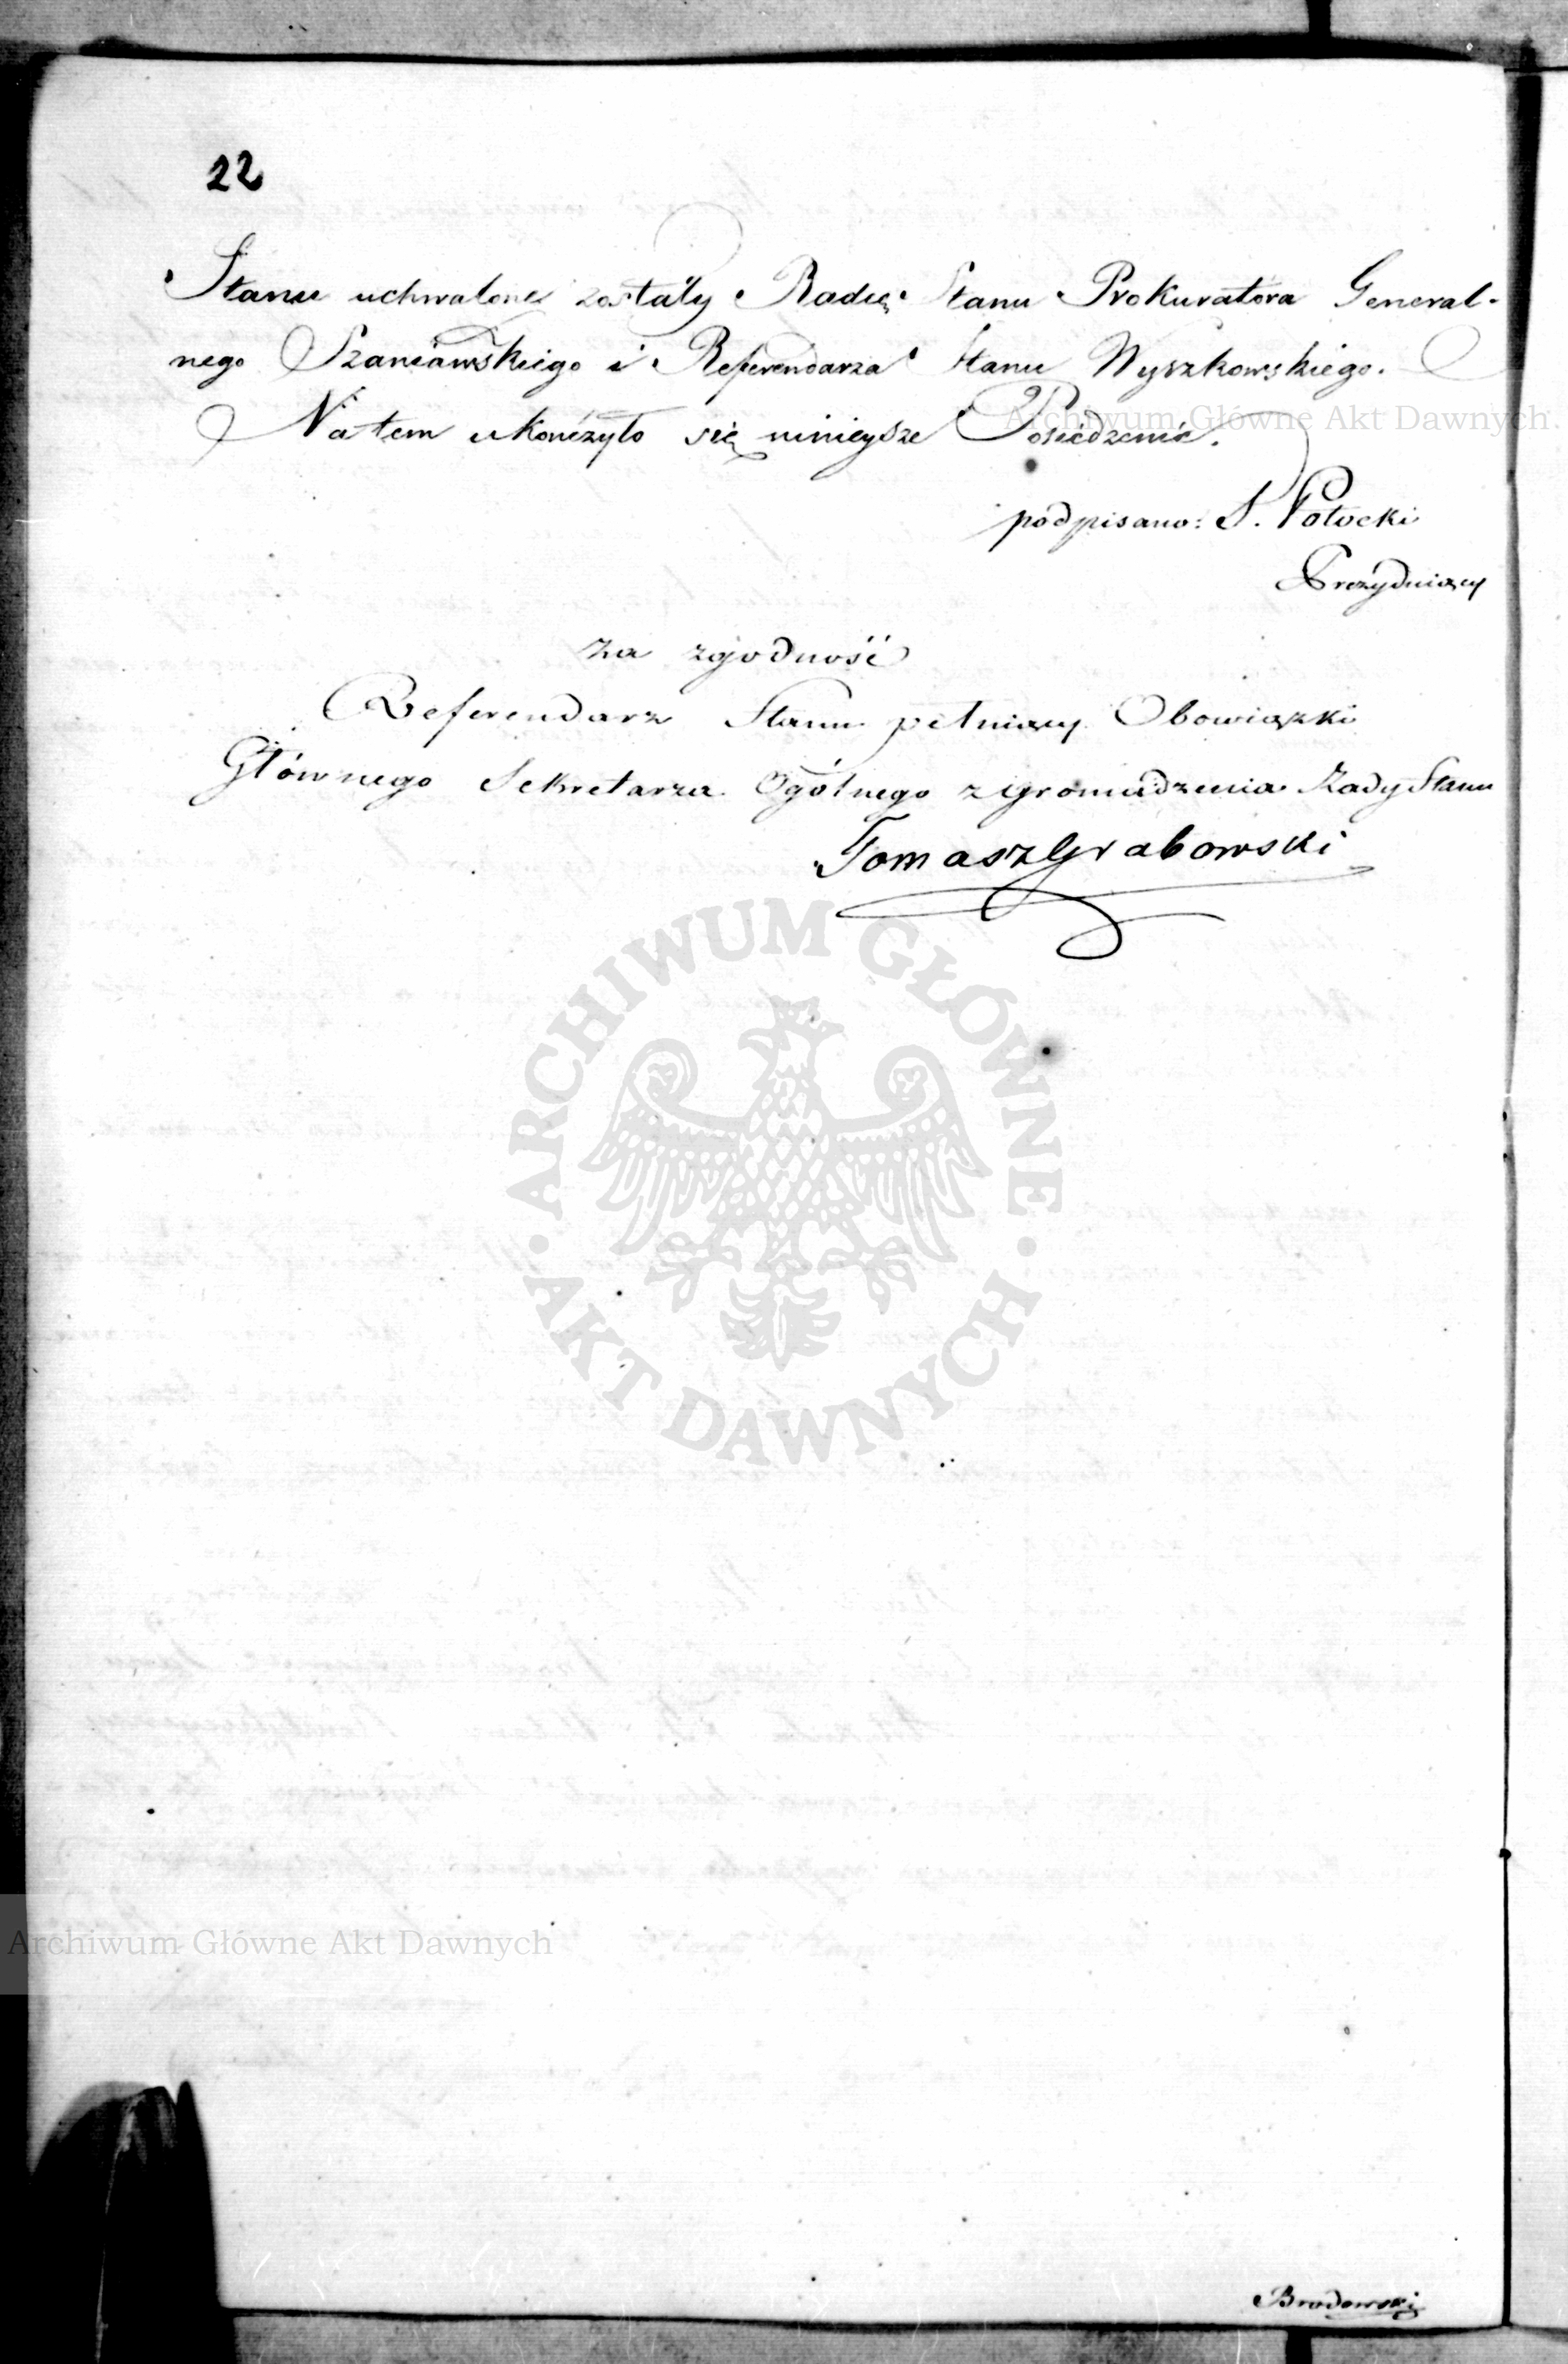 22
Stanu uchwalone zostały Radcę Stanu Prokuratora General-
nego Szaniawskiego i Referendarza Stanu Wyszkowskiego.
Na tem ukończyło się ninieysze Posiedzenie.
Archiwum Główne Akt Dawnych.
podpisano: S. Potocki
Prezyduiący
Za zgodność
Referendarz Stanu pełniący Obowiązki
Głównego Sekretarza Ogólnego zgromadzenia Rady Stanu
Tomasz Grabowski
ARCHIWUM GŁÓWNE
AKT DAWNYCH
Archiwum Główne Akt Dawnych
Brodowski